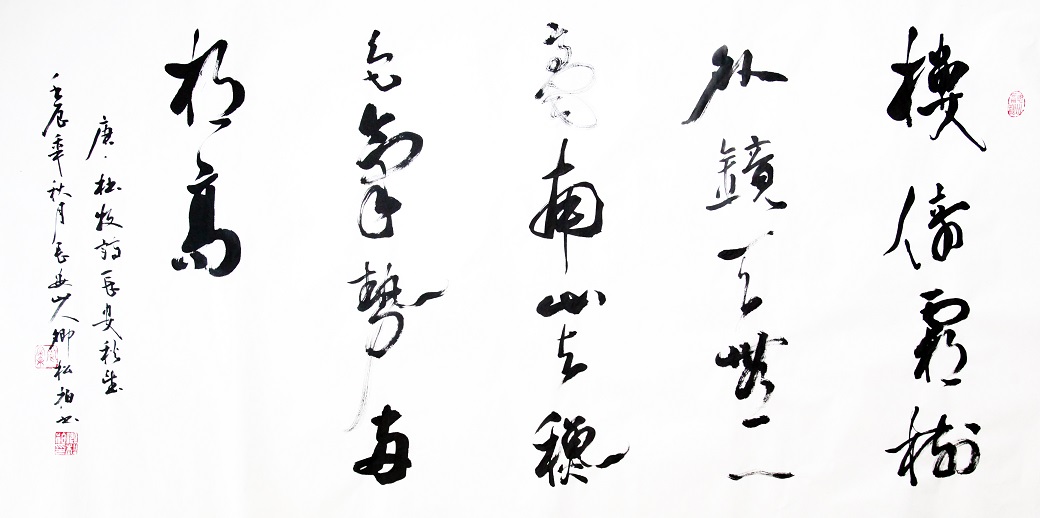 樓倚霜樹
外鏡天無一
毫南山与穐
色氣勢兩
相高
唐·杜牧詩長安秋望
壬辰年秋月長安山人卿松柏书